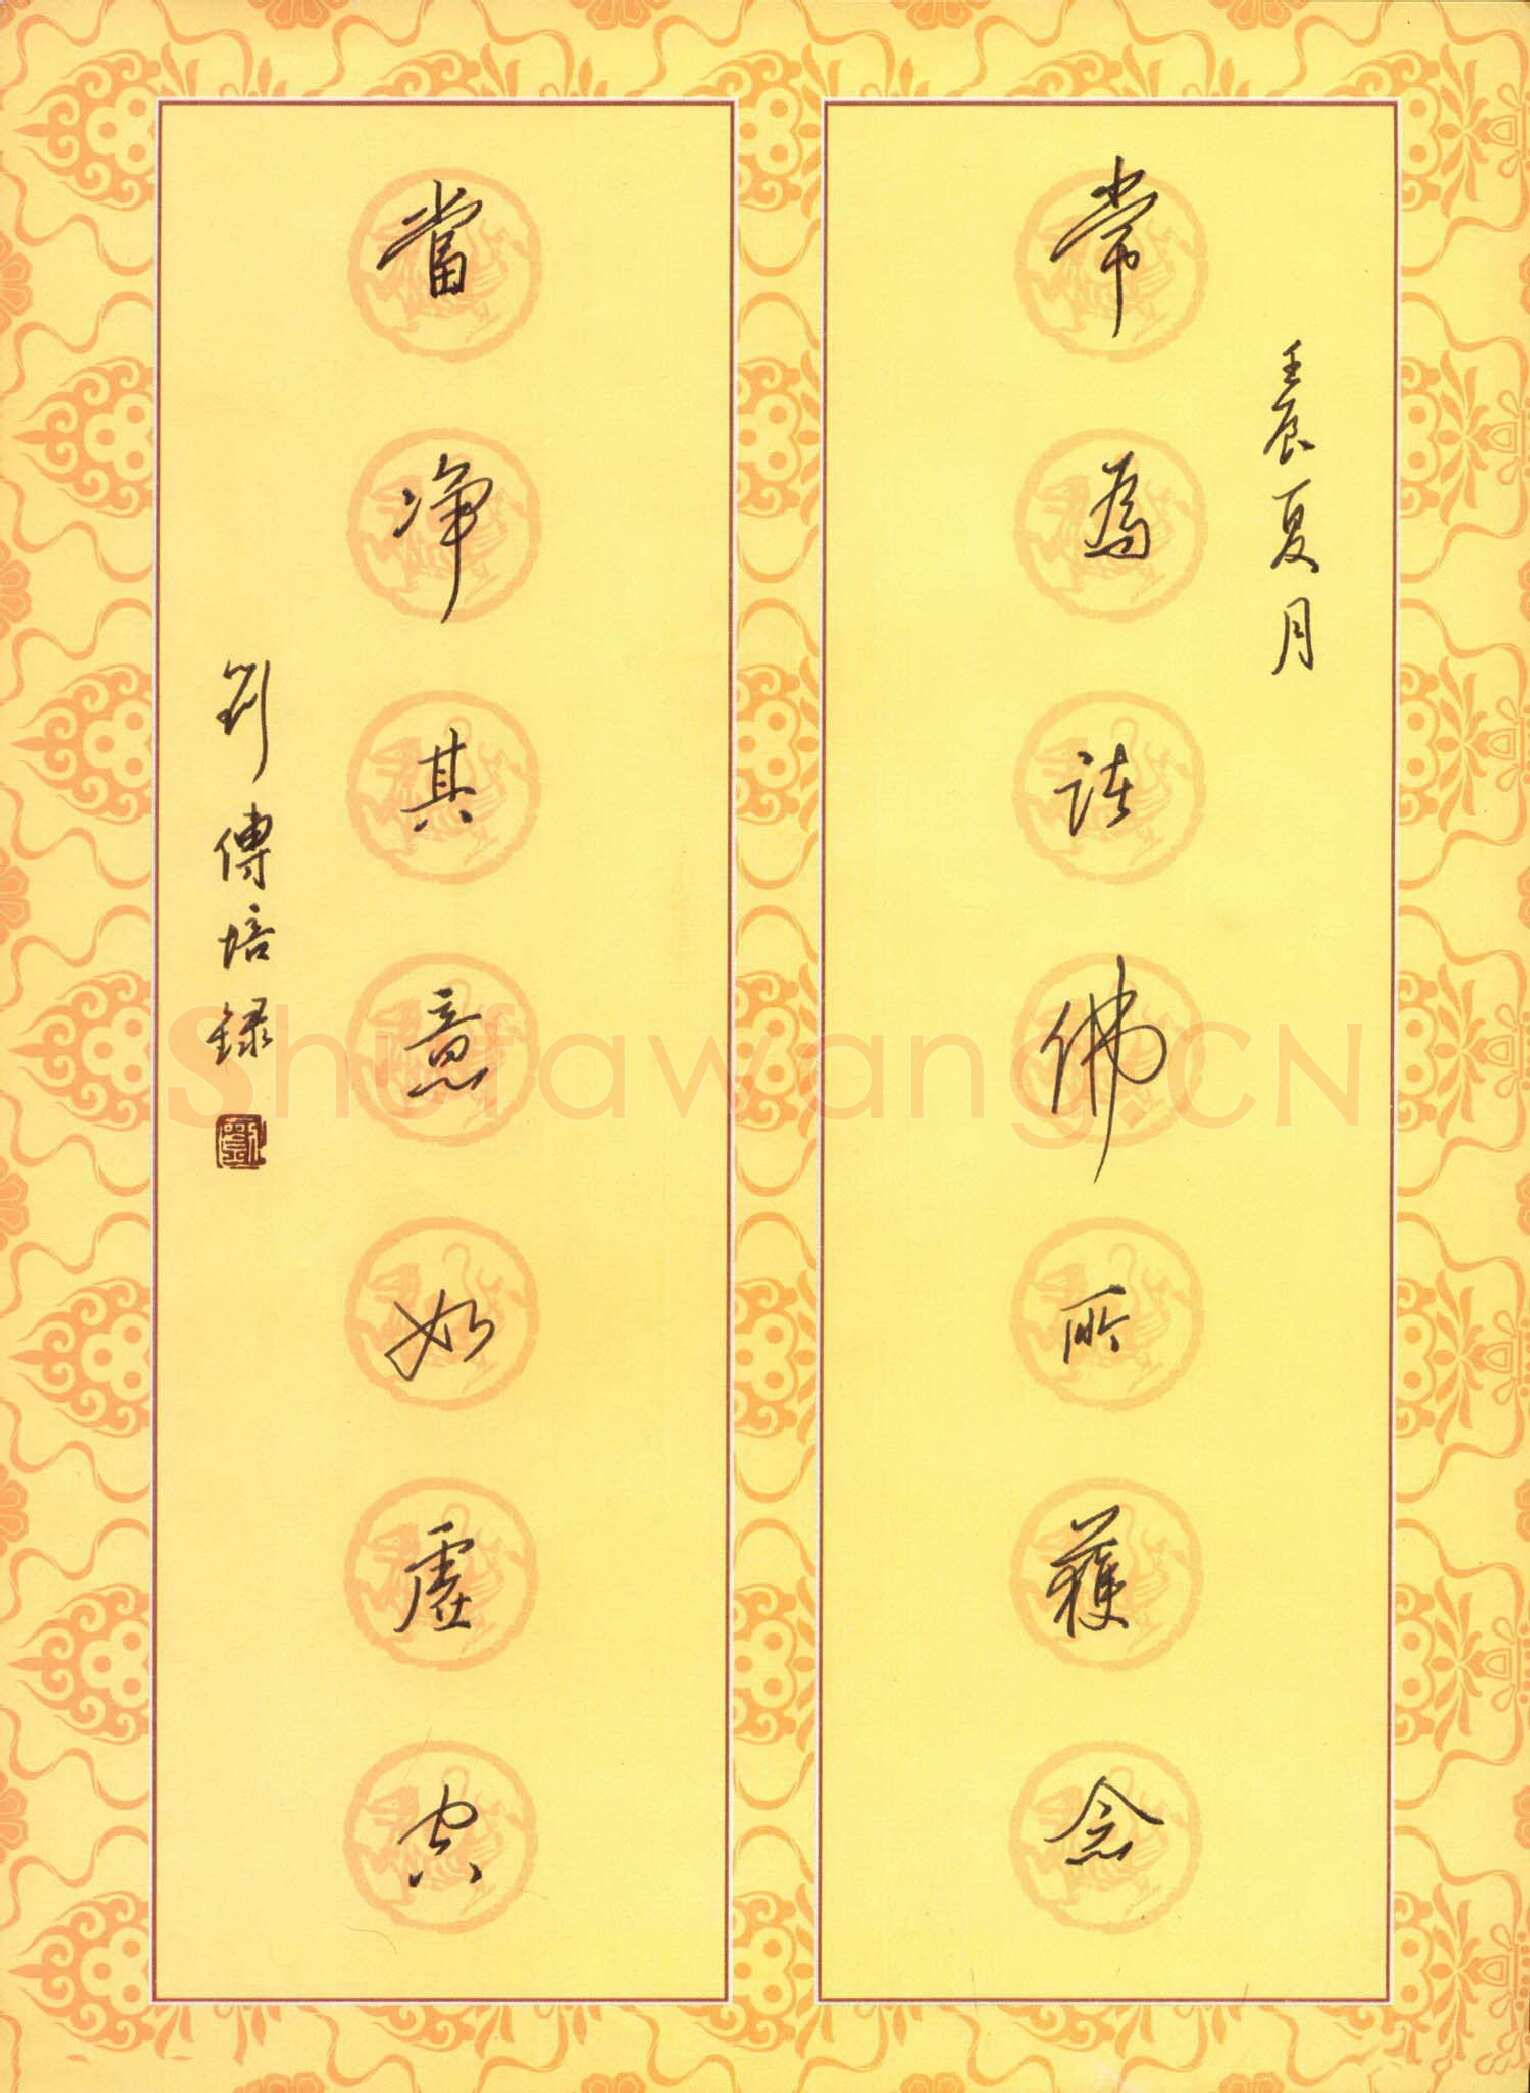 壬辰夏月
常為諸佛所獲念
當净其意如虛空
劉傳培録
Shufawang.CN